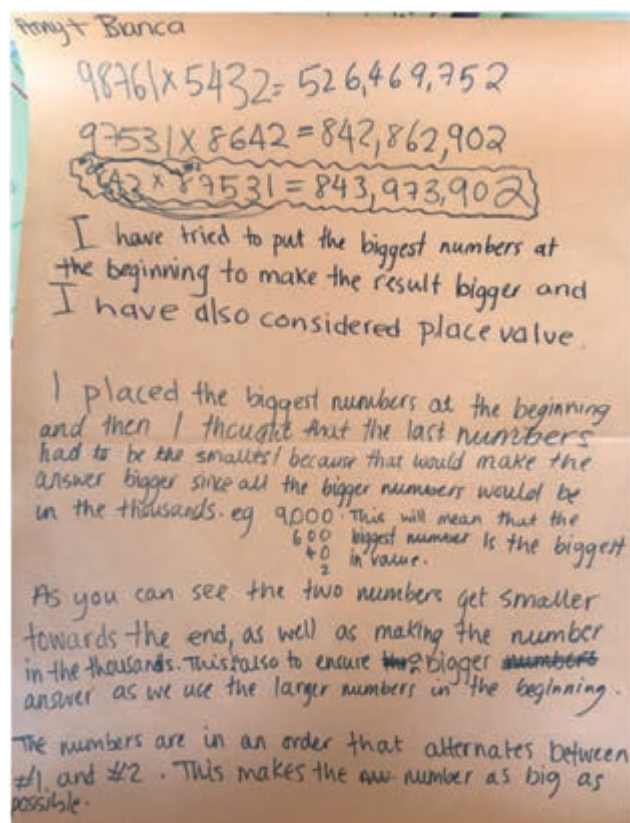 Amy + Bianca
98761 x 5432 = 526,469,752
97531 x 8642 = 842,862,902
9642 x 87531 = 843,973,902
I have tried to put the biggest numbers at
the beginning to make the result bigger and
I have also considered place value.
I placed the biggest numbers at the beginning
and then I thought that the last numbers
had to be the smallest because that would make the
answer bigger since all the bigger numbers would be
in the thousands. eg 9,000. This will mean that the
600 biggest number is the biggest
40 in value.
2
As you can see the two numbers get smaller
towards the end, as well as making the number
in the thousands. This is also to ensure a bigger
answer as we use the larger numbers in the beginning.
The numbers are in an order that alternates between
#1 and #2. This makes the number as big as
possible.